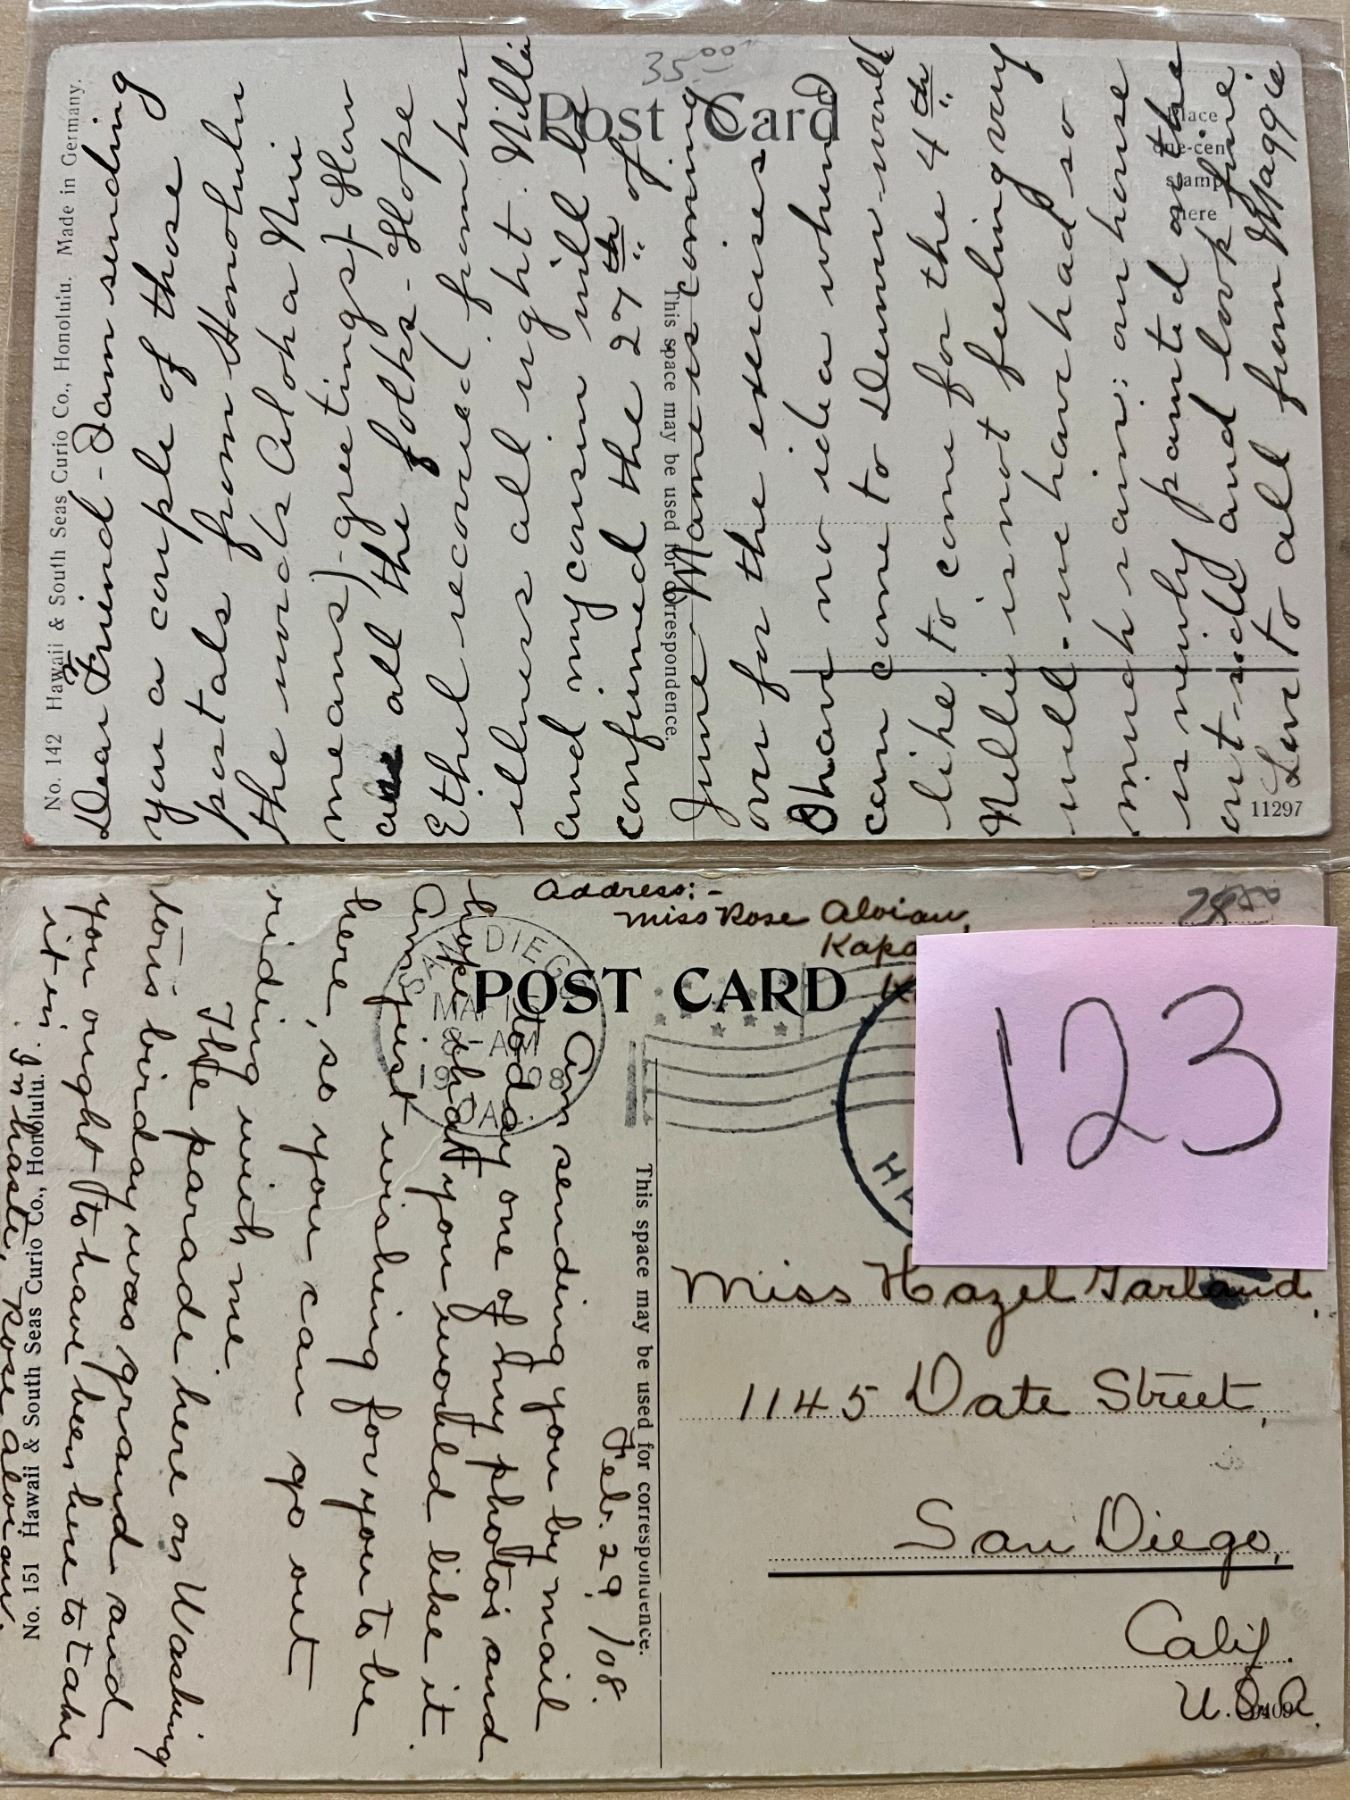 35.00
Post Card
Place
one-cent
stamp
here
No. 142 Hawaii & South Seas Curio Co., Honolulu. Made in Germany.
This space may be used for correspondence.
11297
Dear Friend - I am sending
you a couple of those
postals from Honolulu
the words Aloha Nui
means)-greetings) How
are all the folks - Hope
Ethel recovered from her
illness all right. Nillie
and my cousin will be
confirmed the 27th of
June - Mame is coming
over for the exercises
Ihave no idea when I
can come to Denver-would
like to come for the 4th
Nillie is not feeling very
well - we have had so
much rain: our house
is newly painted on the
out-side and look fine
Love to all from Maggie
Address:-
Miss Rose Aloiau,
Kapa
25.00
POST CARD
SAN DIEGO
8-AM
CAL
123
This space may be used for correspondence.
No. 151 Hawaii & South Seas Curio Co., Honolulu.
Feb. 29, /08.
Am sending you by mail
today one of my photos and
hope that you would like it
Am just wishing for you to be
here, so you can go out
riding with me.
The parade here on Washing
ton's birday was grand and
you ought to have been here to take
it in.
In haste, Rose Aloiau.
Miss Hazel Garland,
1145 Date Street,
San Diego,
Calif.
U.S.A.